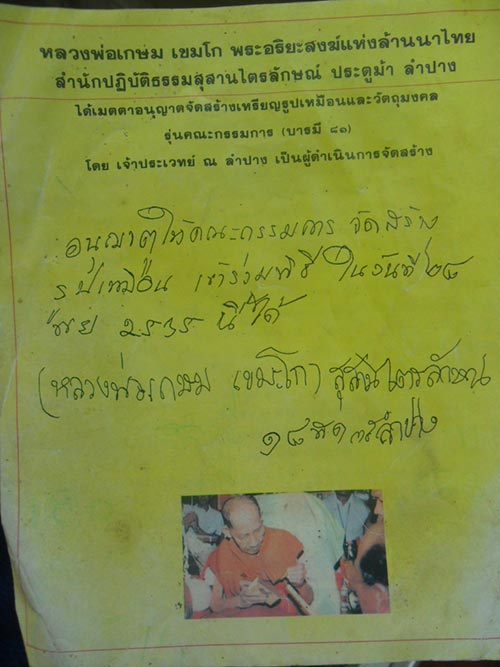 หลวงพ่อเกษม เขมโก พระอริยะสงฆ์แห่งล้านนาไทย
สำนักปฏิบัติธรรมสุสานไตรลักษณ์ ประตูม้า ลำปาง
ได้เมตตาอนุญาตจัดสร้างเหรียญรูปเหมือนและวัตถุมงคล
รุ่นคณะกรรมการ (บารมี ๘๑)
โดย เจ้าประเวทย์ ณ ลำปาง เป็นผู้ดำเนินการจัดสร้าง
ให้คณะกรรมการ จัดสร้าง
รูปเหมือน เข้าร่วมพิธี ในวันที่ ๒๘
๒๕๓๕ นี้ได้
(หลวงพ่อเกษม เขมโก)
ลำปาง